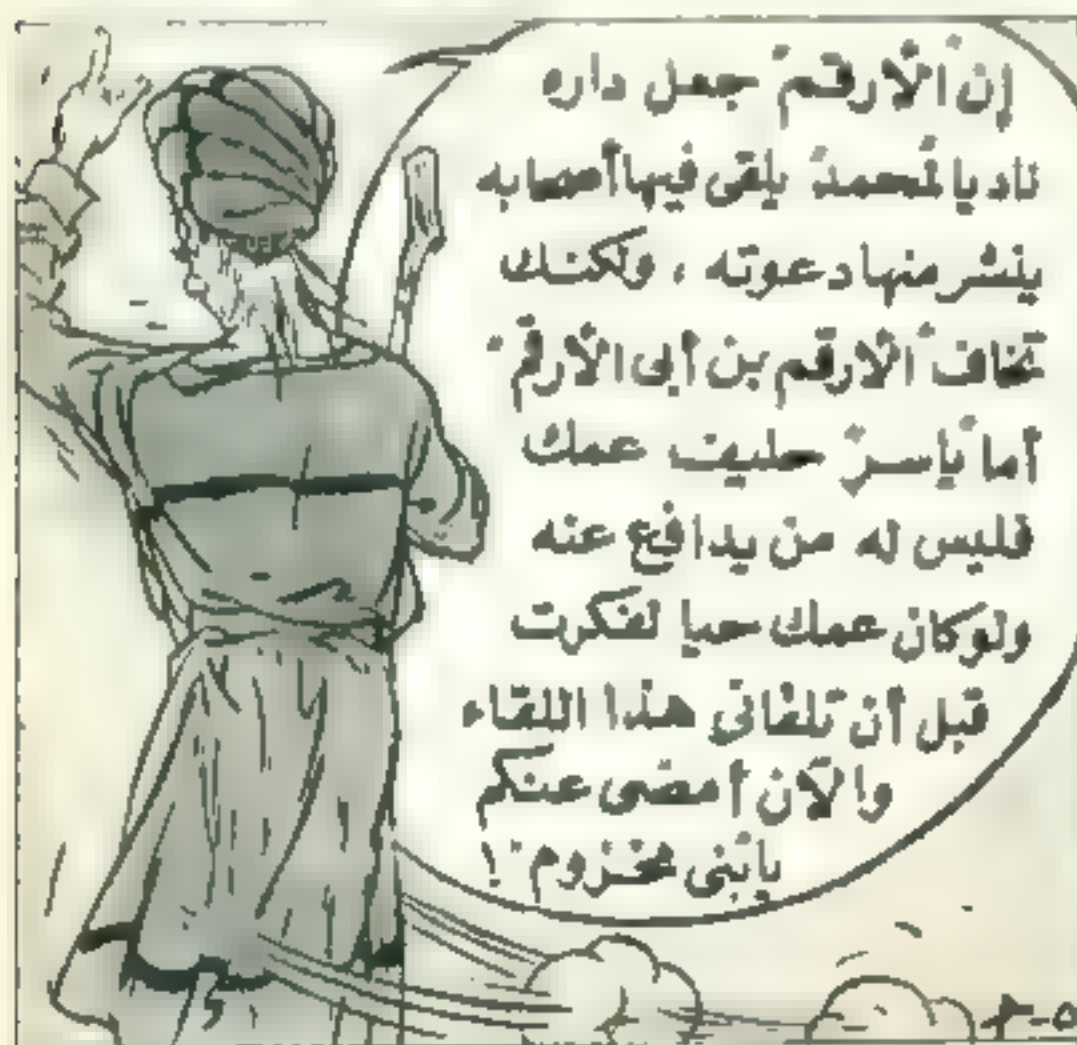 إن "الأرقم" جعل داره
ناديا "لمحمد" يلقى فيها أصحابه
ينشر منها دعوته ، ولكنك
تخاف "الأرقم بن أبى الأرقم"
أما "ياسر" حليف عمك
فليس له من يدافع عنه
ولوكان عمك حيا لفكرت
قبل أن تلقانى هذا اللقاء
والآن أمضى عنكم
يا "بنى مخزوم" !